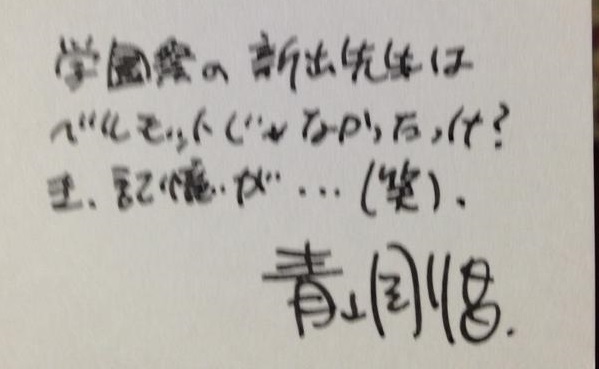 学園祭の新出先生は
ベルモットじゃなかったっけ?
ま、記憶が…(笑).
青山剛昌.